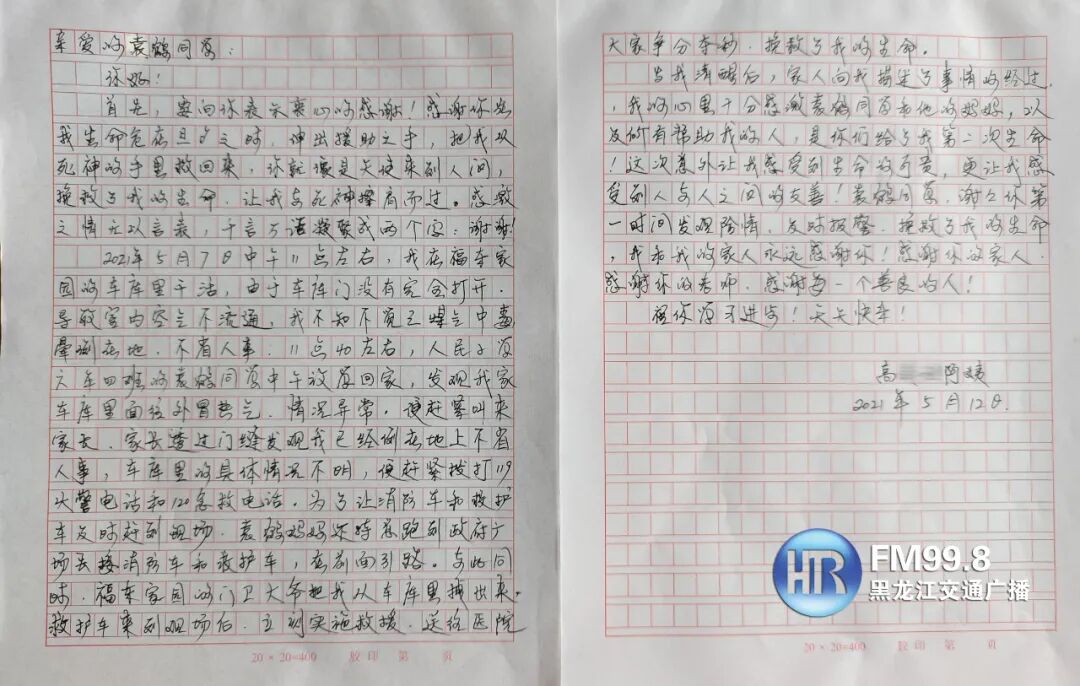 亲爱的袁鹤同学：
你好！
首先，要向你表示衷心的感谢！感谢你在
我生命危在旦夕之时，伸出援助之手，把我从
死神的手里救回来，你就像是天使来到人间，
挽救了我的生命，让我与死神擦肩而过。感激
之情无以言表，千言万语凝聚成两个字：谢谢！
2021年5月7日中午11点左右，我在福东家
园的车库里干活，由于车库门没有完全打开，
导致室内空气不流通，我不知不觉已煤气中毒
晕倒在地，不省人事；11点40左右，人民小学
六年四班的袁鹤同学中午放学回家，发现我家
车库里面往外冒热气，情况异常，便赶紧叫来
家长，家长透过门缝发现我已经倒在地上不省
人事，车库里的具体情况不明，便赶紧拨打119
火警电话和120急救电话。为了让消防车和救护
车及时赶到现场，袁鹤妈妈还特意跑到政府广
场去接消防车和救护车，在前面引路。与此同
时，福东家园的门卫大爷把我从车库里拽出来。
救护车来到现场后，立刻实施救援，送给医院
20×20=400 胶印 第 页
大家争分夺秒，挽救了我的生命。
当我清醒后，家人向我描述了事情的经过
，我的心里十分感激袁鹤同学和他的妈妈，以
及所有帮助我的人，是你们给了我第二次生命
！这次意外让我感受到生命的可贵，更让我感
受到人与人之间的友善！袁鹤同学，谢谢你第
一时间发现险情，及时报警，挽救了我的生命
，我和我的家人永远感谢你！感谢你的家人，
感谢你的老师，感谢每一个善良的人！
祝你学习进步！天天快乐！
高 阿姨
2021年5月12日.
20×20=400 胶印 第 页
HR FM99.8
黑龙江交通广播